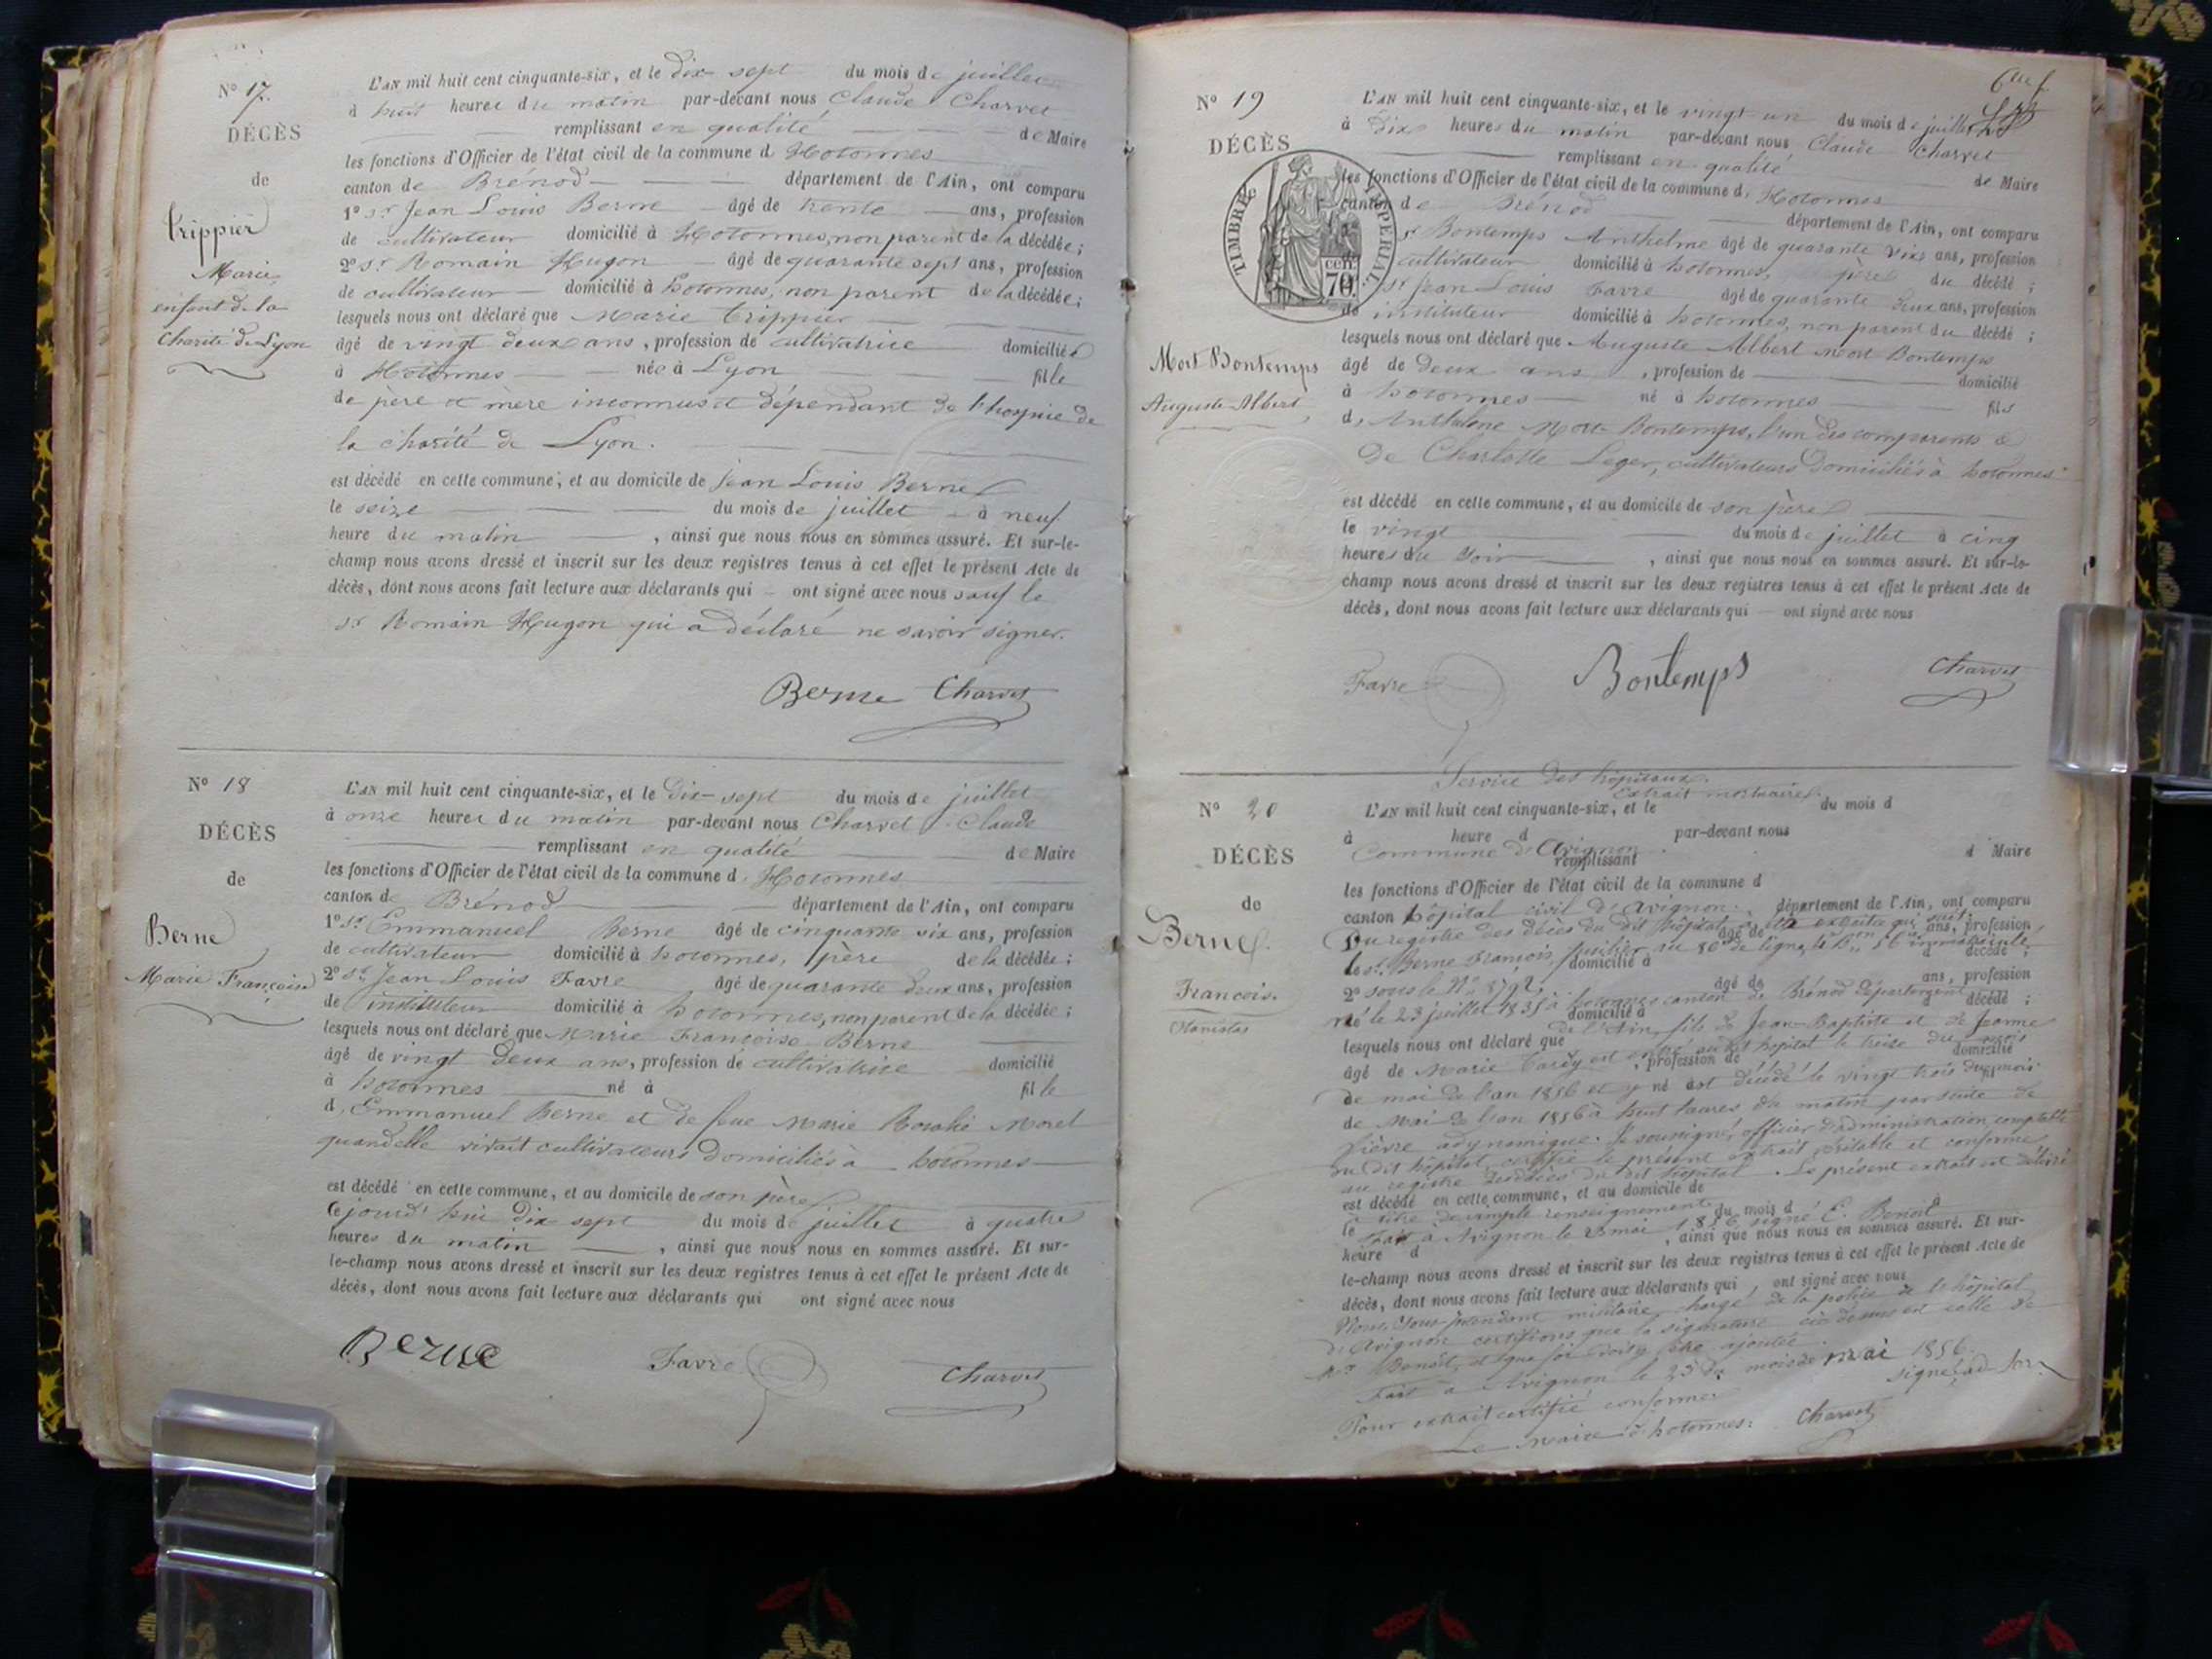 N° 17.
DÉCÈS
de
Trippier
Marie,
enfant de la
Charité de Lyon
L'AN mil huit cent cinquante-six, et le dix-sept du mois de juillet
à huit heures du matin par-devant nous Claude Charvet
remplissant en qualité de Maire
les fonctions d'Officier de l'état civil de la commune d' Hotonnes
canton de Brénod département de l'Ain, ont comparu
1° Sr Jean Louis Berne âgé de trente ans, profession
de cultivateur domicilié à Hotonnes, non parent de la décédée ;
2° Sr Romain Hugon âgé de quarante sept ans, profession
de cultivateur domicilié à hotonnes, non parent de la décédée ;
lesquels nous ont déclaré que Marie Trippier
âgé de vingt deux ans, profession de cultivatrice domiciliée
à Hotonnes née à Lyon fille
de père et mère inconnus et dépendant de l'hospice de
la charité de Lyon.
est décédé en cette commune, et au domicile de Jean Louis Berne
le seize du mois de juillet à neuf
heure du matin, ainsi que nous nous en sommes assuré. Et sur-le-
champ nous avons dressé et inscrit sur les deux registres tenus à cet effet le présent Acte de
décès, dont nous avons fait lecture aux déclarants qui ont signé avec nous sauf le
sr Romain Hugon qui a déclaré ne savoir signer.
Berne Charvet
N° 18
DÉCÈS
de
Berne
Marie Françoise
L'AN mil huit cent cinquante-six, et le Dix-sept du mois de juillet
à onze heures du matin par-devant nous Charvet Claude
remplissant en qualité de Maire
les fonctions d'Officier de l'état civil de la commune d' Hotonnes
canton de Brénod département de l'Ain, ont comparu
1° Sr Emmanuel Berne âgé de cinquante six ans, profession
de cultivateur domicilié à hotonnes, père de la décédée ;
2° Sr Jean Louis Favre âgé de quarante deux ans, profession
de instituteur domicilié à hotonnes, non parent de la décédée ;
lesquels nous ont déclaré que Marie Françoise Berne
âgé de vingt deux ans, profession de cultivatrice domicilié
à hotonnes né à fille
d' Emmanuel Berne et de feue Marie Rosalie Morel
quandelle vivait cultivateurs domiciliés à hotonnes
est décédé en cette commune, et au domicile de son père
Cejourd'hui dix sept du mois de juillet à quatre
heures du matin, ainsi que nous nous en sommes assuré. Et sur-
le-champ nous avons dressé et inscrit sur les deux registres tenus à cet effet le présent Acte de
décès, dont nous avons fait lecture aux déclarants qui ont signé avec nous
Berne Favre Charvet
N° 19
DÉCÈS
TIMBRE IMPERIAL
70 cen.
Mort Bontemps
Auguste Albert
L'AN mil huit cent cinquante-six, et le vingt un du mois de juillet
à dix heures du matin par-devant nous Claude Charvet
remplissant en qualité de Maire
les fonctions d'Officier de l'état civil de la commune d' Hotonnes
canton de Brénod département de l'Ain, ont comparu
sr Bontemps Anthelme âgé de quarante six ans, profession
cultivateur domicilié à hotonnes, père du décédé ;
sr Jean Louis Favre âgé de quarante deux ans, profession
de instituteur domicilié à hotonnes, non parent du décédé ;
lesquels nous ont déclaré que Auguste Albert Mort Bontemps
âgé de deux ans, profession de domicilié
à hotonnes né à hotonnes fils
d' Anthelme Mort Bontemps, l'un des comparants &
de Charlotte Leger, cultivateurs domiciliés à hotonnes
est décédé en cette commune, et au domicile de son père
le vingt du mois de juillet à cinq
heures du soir, ainsi que nous nous en sommes assuré. Et sur-le-
champ nous avons dressé et inscrit sur les deux registres tenus à cet effet le présent Acte de
décès, dont nous avons fait lecture aux déclarants qui ont signé avec nous
Favre Bontemps Charvet
N° 20
DÉCÈS
de
Berne
François
Stanislas
Service des hôpitaux.
Extrait mortuaire.
L'AN mil huit cent cinquante-six, et le du mois d
à heure d par-devant nous
Commune d'Avignon
remplissant d Maire
les fonctions d'Officier de l'état civil de la commune d
canton hôpital civil d'Avignon. département de l'Ain, ont comparu
Du registre des décès du dit hôpital a été extrait ce qui suit.
âgé de ans, profession
le sr. Berne François, fusilier au 80e de ligne, immatriculé
domicilié à d décédé ;
2° sous le N° âgé de ans, profession
né le 23 juillet 1835 à hotonnes canton de Brénod département
domicilié à d décédé ;
de l'Ain, fils de Jean-Baptiste et de Jeanne
lesquels nous ont déclaré que
âgé de Marie Tardy est entré au dit hôpital le treize du mois
profession de domicilié
de mai de l'an 1856 et y est décédé le vingt trois du mois
né à fil
de Mai de l'an 1856 à huit heures du matin par suite de
fièvre adynamique. Je soussigné, officier d'administration comptable
du dit hôpital certifie le présent extrait véritable et conforme
au registre des décès du dit hôpital. Le présent extrait est délivré
est décédé en cette commune, et au domicile de
à titre de simple renseignement.
le du mois d à
fait à Avignon le 23 mai 1856 signé E. Benoit
heure d, ainsi que nous nous en sommes assuré. Et sur-
le-champ nous avons dressé et inscrit sur les deux registres tenus à cet effet le présent Acte de
décès, dont nous avons fait lecture aux déclarants qui ont signé avec nous
Nous, Sous-Intendant militaire, chargé de la police de l'hôpital
d'Avignon certifions que la signature ci-dessus est celle de
Mr Benoit, et que foi doit y être ajoutée.
Fait à Avignon le 23 du mois de mai 1856.
signé
Pour extrait certifié conforme
Le Maire d'hotonnes: Charvet